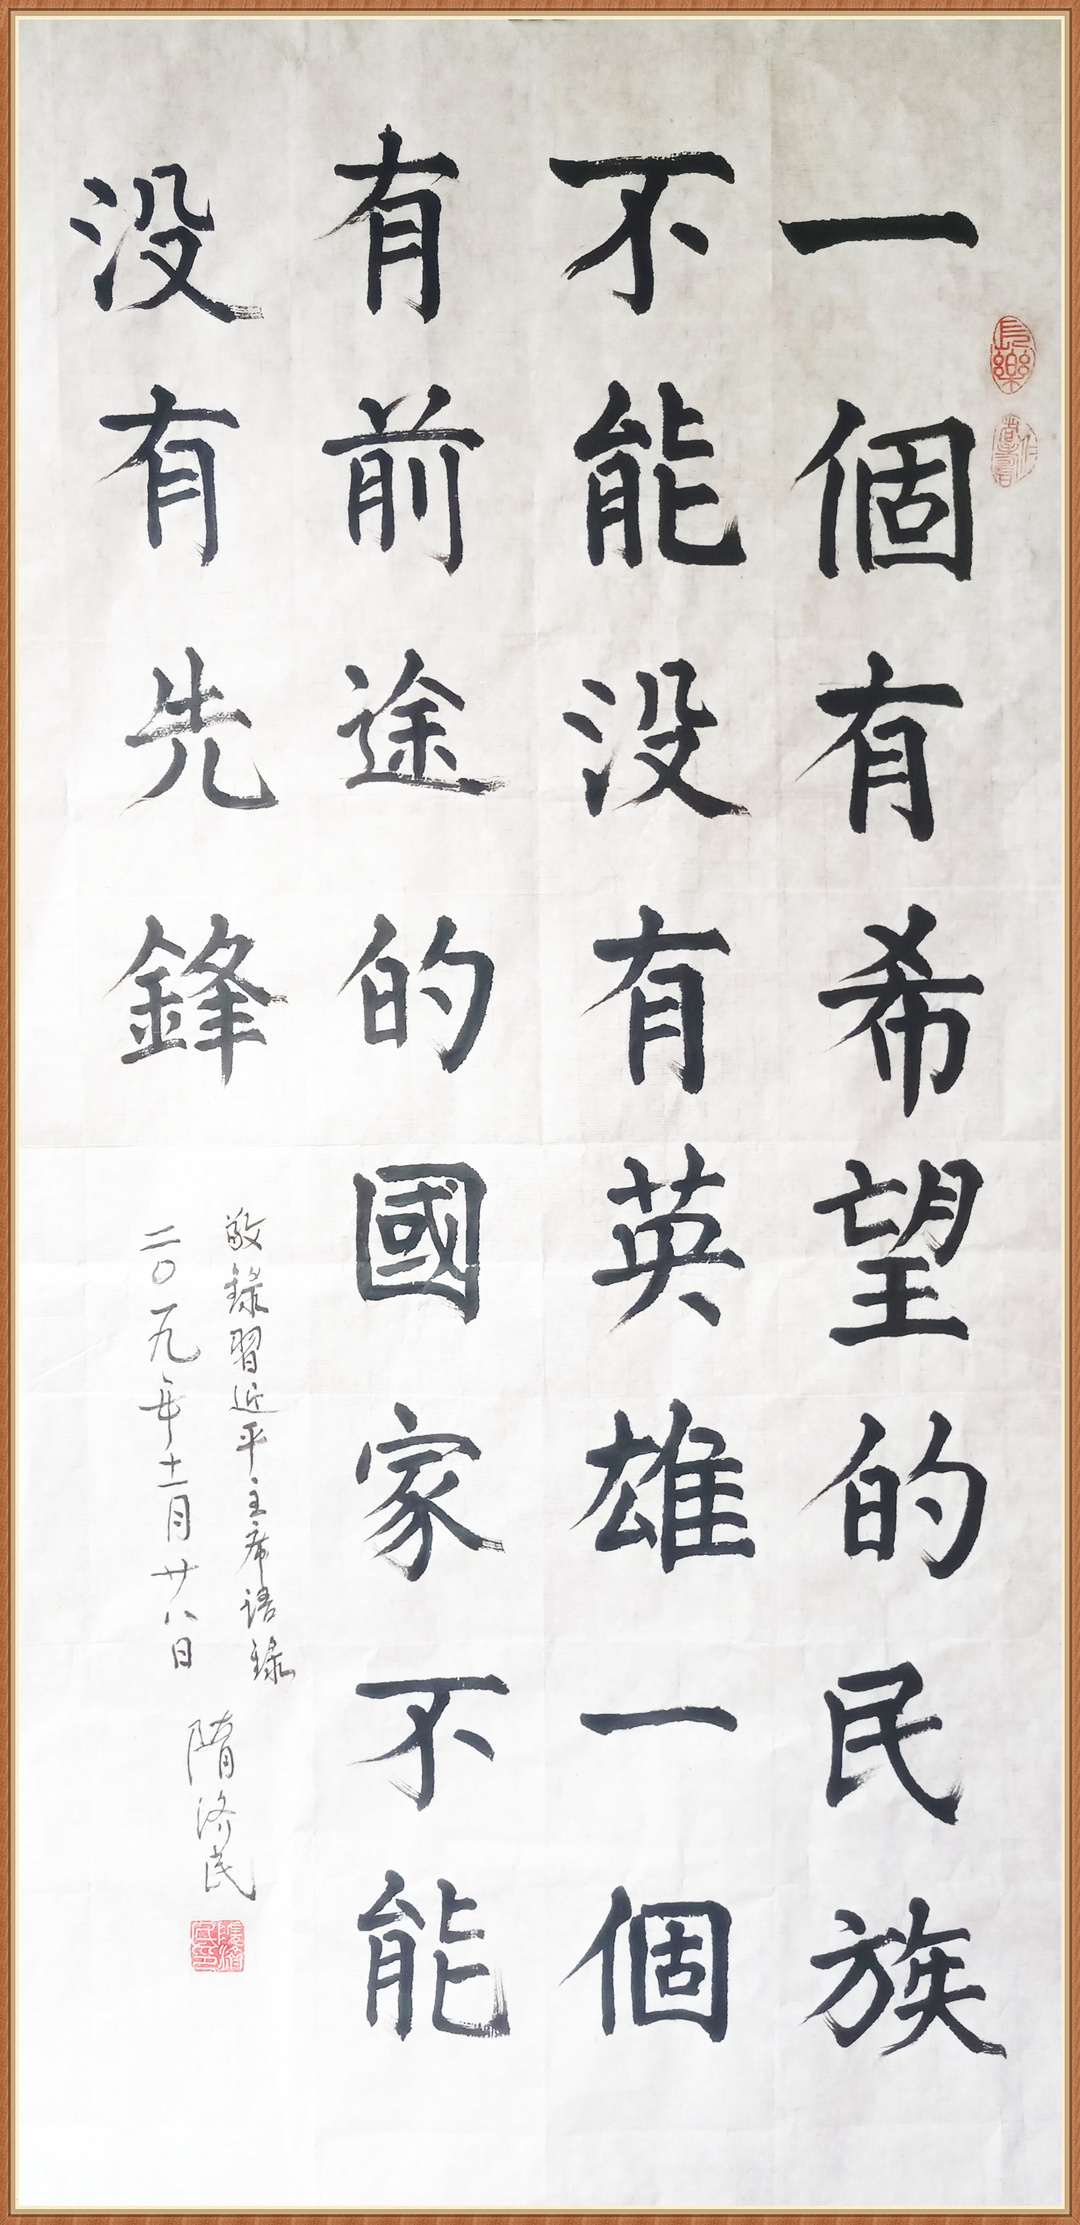 一個有希望的民族
不能没有英雄一個
有前途的國家不能
没有先鋒
敬錄習近平主席语録
二〇一九年十一月廿八日
隋济民
長樂